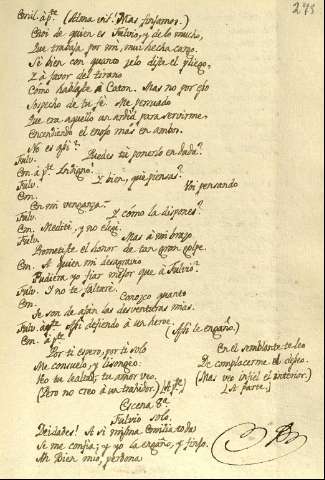 293
Emil. à p.te (Alma vil! Mas finjamos.)
Creí de quien es Fulvio, y de lo mucho,
Que trabaja por mi, mui hecha cargo.
Sè bien con quanto zelo dixe el pliego,
Y à favor del tirano
Còmo hablaste à Caton. Mas no por eso
Sospecho de tu fè. Me persuado
Que era aquello un ardid para servirme,
Encendiendo el enojo mas en ambos.
No es asi?
Fulv. Puedes tù ponerlo en duda?
Em. à p.te Indigno.
Fulv. Y bien, què piensas?
Em. Voi pensando
En mi venganza.
Fulv. Y còmo la dispones?
Em. Meditè, y no elegi.
Fulv. Mas à mi brazo
Prometiste el honor de tan gran golpe.
Em. A quien mi desagravio
Pudiera yo fiar mejor que à Fulvio?
Fulv. Y no te faltarè.
Em. Conozco quanto
Te son de afàn las desventuras mias.
Fulv. àp.te Asi defiendo à un heroe
Em. à p.te (Asi le engaño.)
Por ti espero, por ti solo
Me consuelo, y lisongeo.
Veo tu lealtad, tu amor veo.
(Pero no creo à un trahidor.) (à p.te)
En el semblante te leo
De complacerme el deseo.
(Mas veo infiel el interior.)
(A parte.)
Escena 8.a
Fulvio solo.
Deidades! A si misma Emilia toda
Se me confia; y yo la engaño, y finjo.
Ah Bien mio, perdona